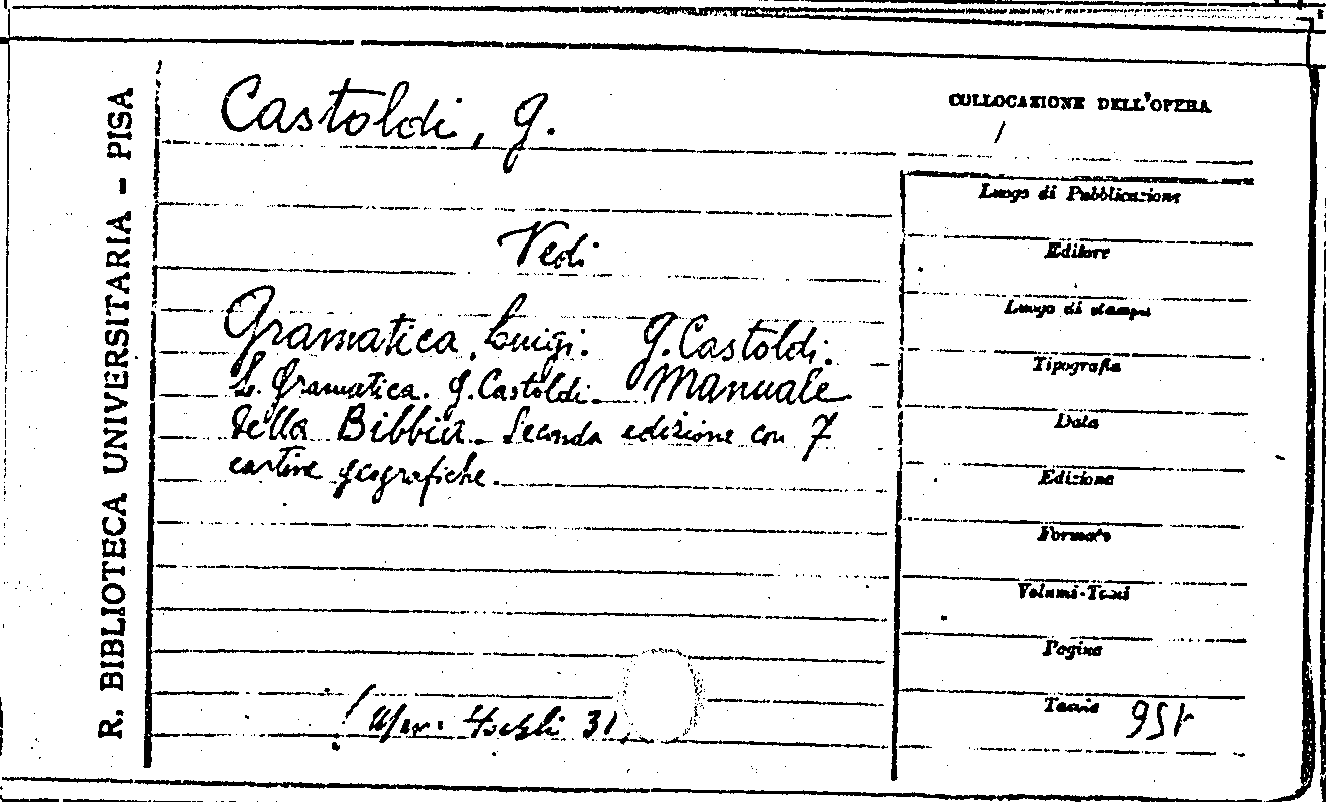 R. BIBLIOTECA UNIVERSITARIA - PISA
Castoldi, G.
Vedi
Gramatica, Luigi. G. Castoldi.
L. Gramatica. G. Castoldi. Manuale
della Bibbia. Seconda edizione con 7
cartine geografiche.
31
COLLOCAZIONE DELL'OPERA
Luogo di Pubblicazione
Editore
Luogo di stampa
Tipografia
Data
Edizione
Formato
Volumi-Tomi
Pagine
Tavole